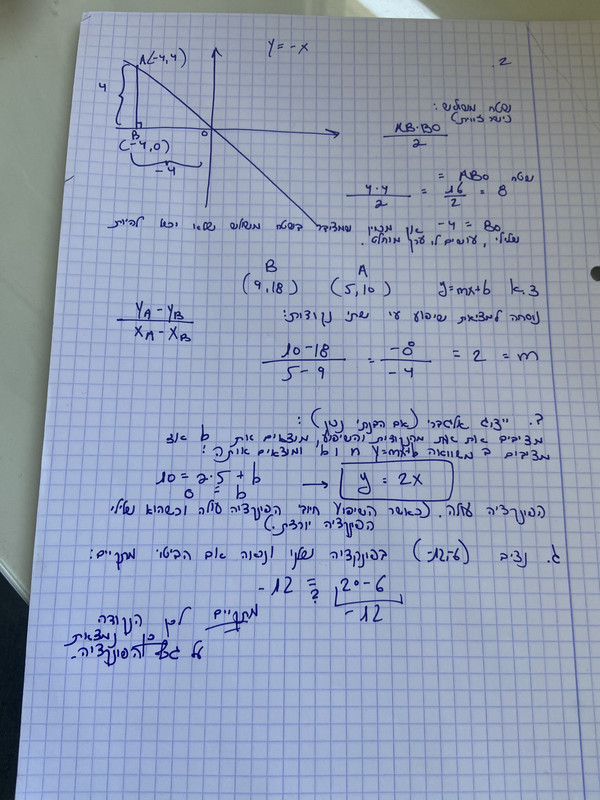 2.
y = -x
A(-4,4)
4
B
(-4,0)
0
-4
שטח משולש:
(ישר זווית)
AB·BO / 2
שטח ABO =
4·4 / 2 = 16 / 2 = 8
BO = -4 אך מכיוון שמדובר בשטח משולש שלא יכול להיות
שלילי, עושים לו ערך מוחלט.
3.א y=mx+b A (5,10) B (9,18)
נוסחה למציאת שיפוע ע״י שתי נקודות:
YA - YB / XA - XB
10-18 / 5-9 = -8 / -4 = 2 = m
ב. ייצוג אלגברי (אם הבנתי נכון):
מציבים את אחת מהנקודות והשיפוע, מוצאים את b ואז
מציבים ב משוואה y=mx+b m ו b ומוצאים אותה:
10 = 2·5 + b → y = 2x
0 = b
הפונקציה עולה. (כאשר השיפוע חיובי הפונקציה עולה וכשהוא שלילי
הפונקציה יורדת.)
ג. נציב (-6,-12) בפונקציה שלנו ונראה אם הביטוי מתקיים:
-12 =? 2·-6
-12
מתקיים לכן הנקודה
כן נמצאת
על גרף הפונקציה.